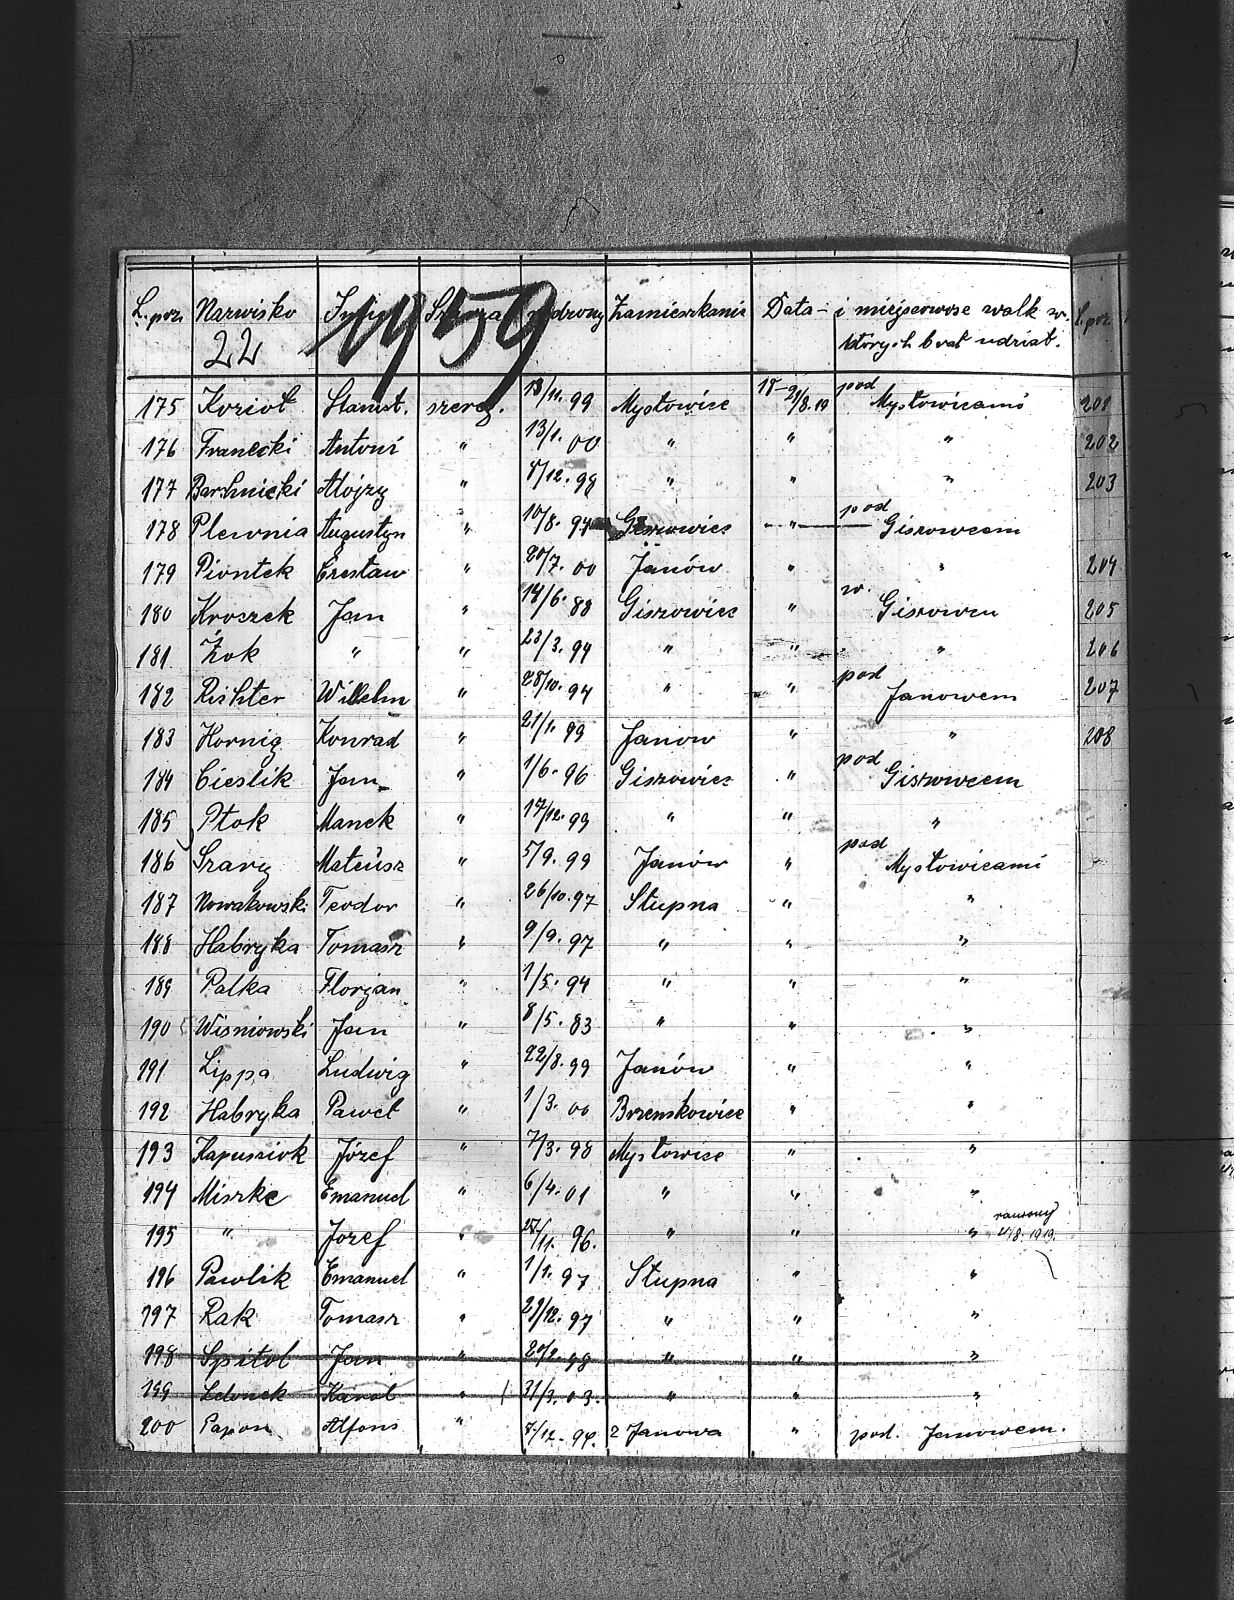 L. porz. Nazwisko Imię Szarża urodzony Zamieszkanie Data - i miejscowość walk w L. porz.
których brał udział.
22 1959
175 Kozioł Stanisł. szereg. 18/11. 99 Mysłowice 18-21/8.19 pod Mysłowicami 201
176 Franecki Antoni " 13/1. 00 " " " 202
177 Alojzy " 8/12. 98 " " " 203
178 Plewnia Augustyn " 10/8. 94 Giszowiec " pod Giszowcem
179 Piontek Czesław " 20/7. 00 Janów " " 204
180 Kroszek Jan " 14/6. 88 Giszowiec " w. Giszowcu 205
181 Żok " " 23/3. 94 " " " 206
182 Richter Wilhelm " 28/10. 94 " " pod Janowem 207
183 Hornig Konrad " 21/1. 99 Janow " " 208
184 Cieslik Jan " 1/6. 96 Giszowiec " pod Giszowcem
185 Ptok Manek " 17/12. 99 " " "
186 Szary Mateusz " 5/9. 99 Janów " pod Mysłowicami
187 Nowakowski Teodor " 26/10. 97 Słupna " "
188 Habryka Tomasz " 9/9. 97 " " "
189 Palka Florjan " 1/5. 94 " " "
190 Wisniowski Jan " 8/5. 83 " " "
191 Lippa Ludwig " 22/8. 99 Janów " "
192 Habryka Paweł " 1/3. 00 Brzenskowice " "
193 Kapusciok Józef " 7/3. 98 Mysłowice " "
194 Miszke Emanuel " 6/4. 01 " " "
195 " Józef " 27/11. 96. " " " raniony 21/8. 1919.
196 Pawlik Emanuel " 1/1. 97 Słupna " "
197 Rak Tomasz " 29/12. 97 " " "
198 Spitol Jan " 20/2. 98 " " "
199 Ledonek Karol " 31/3. 03. " " "
200 Papon Alfons " 8/12. 94. z Janowa " pod. Janowem.